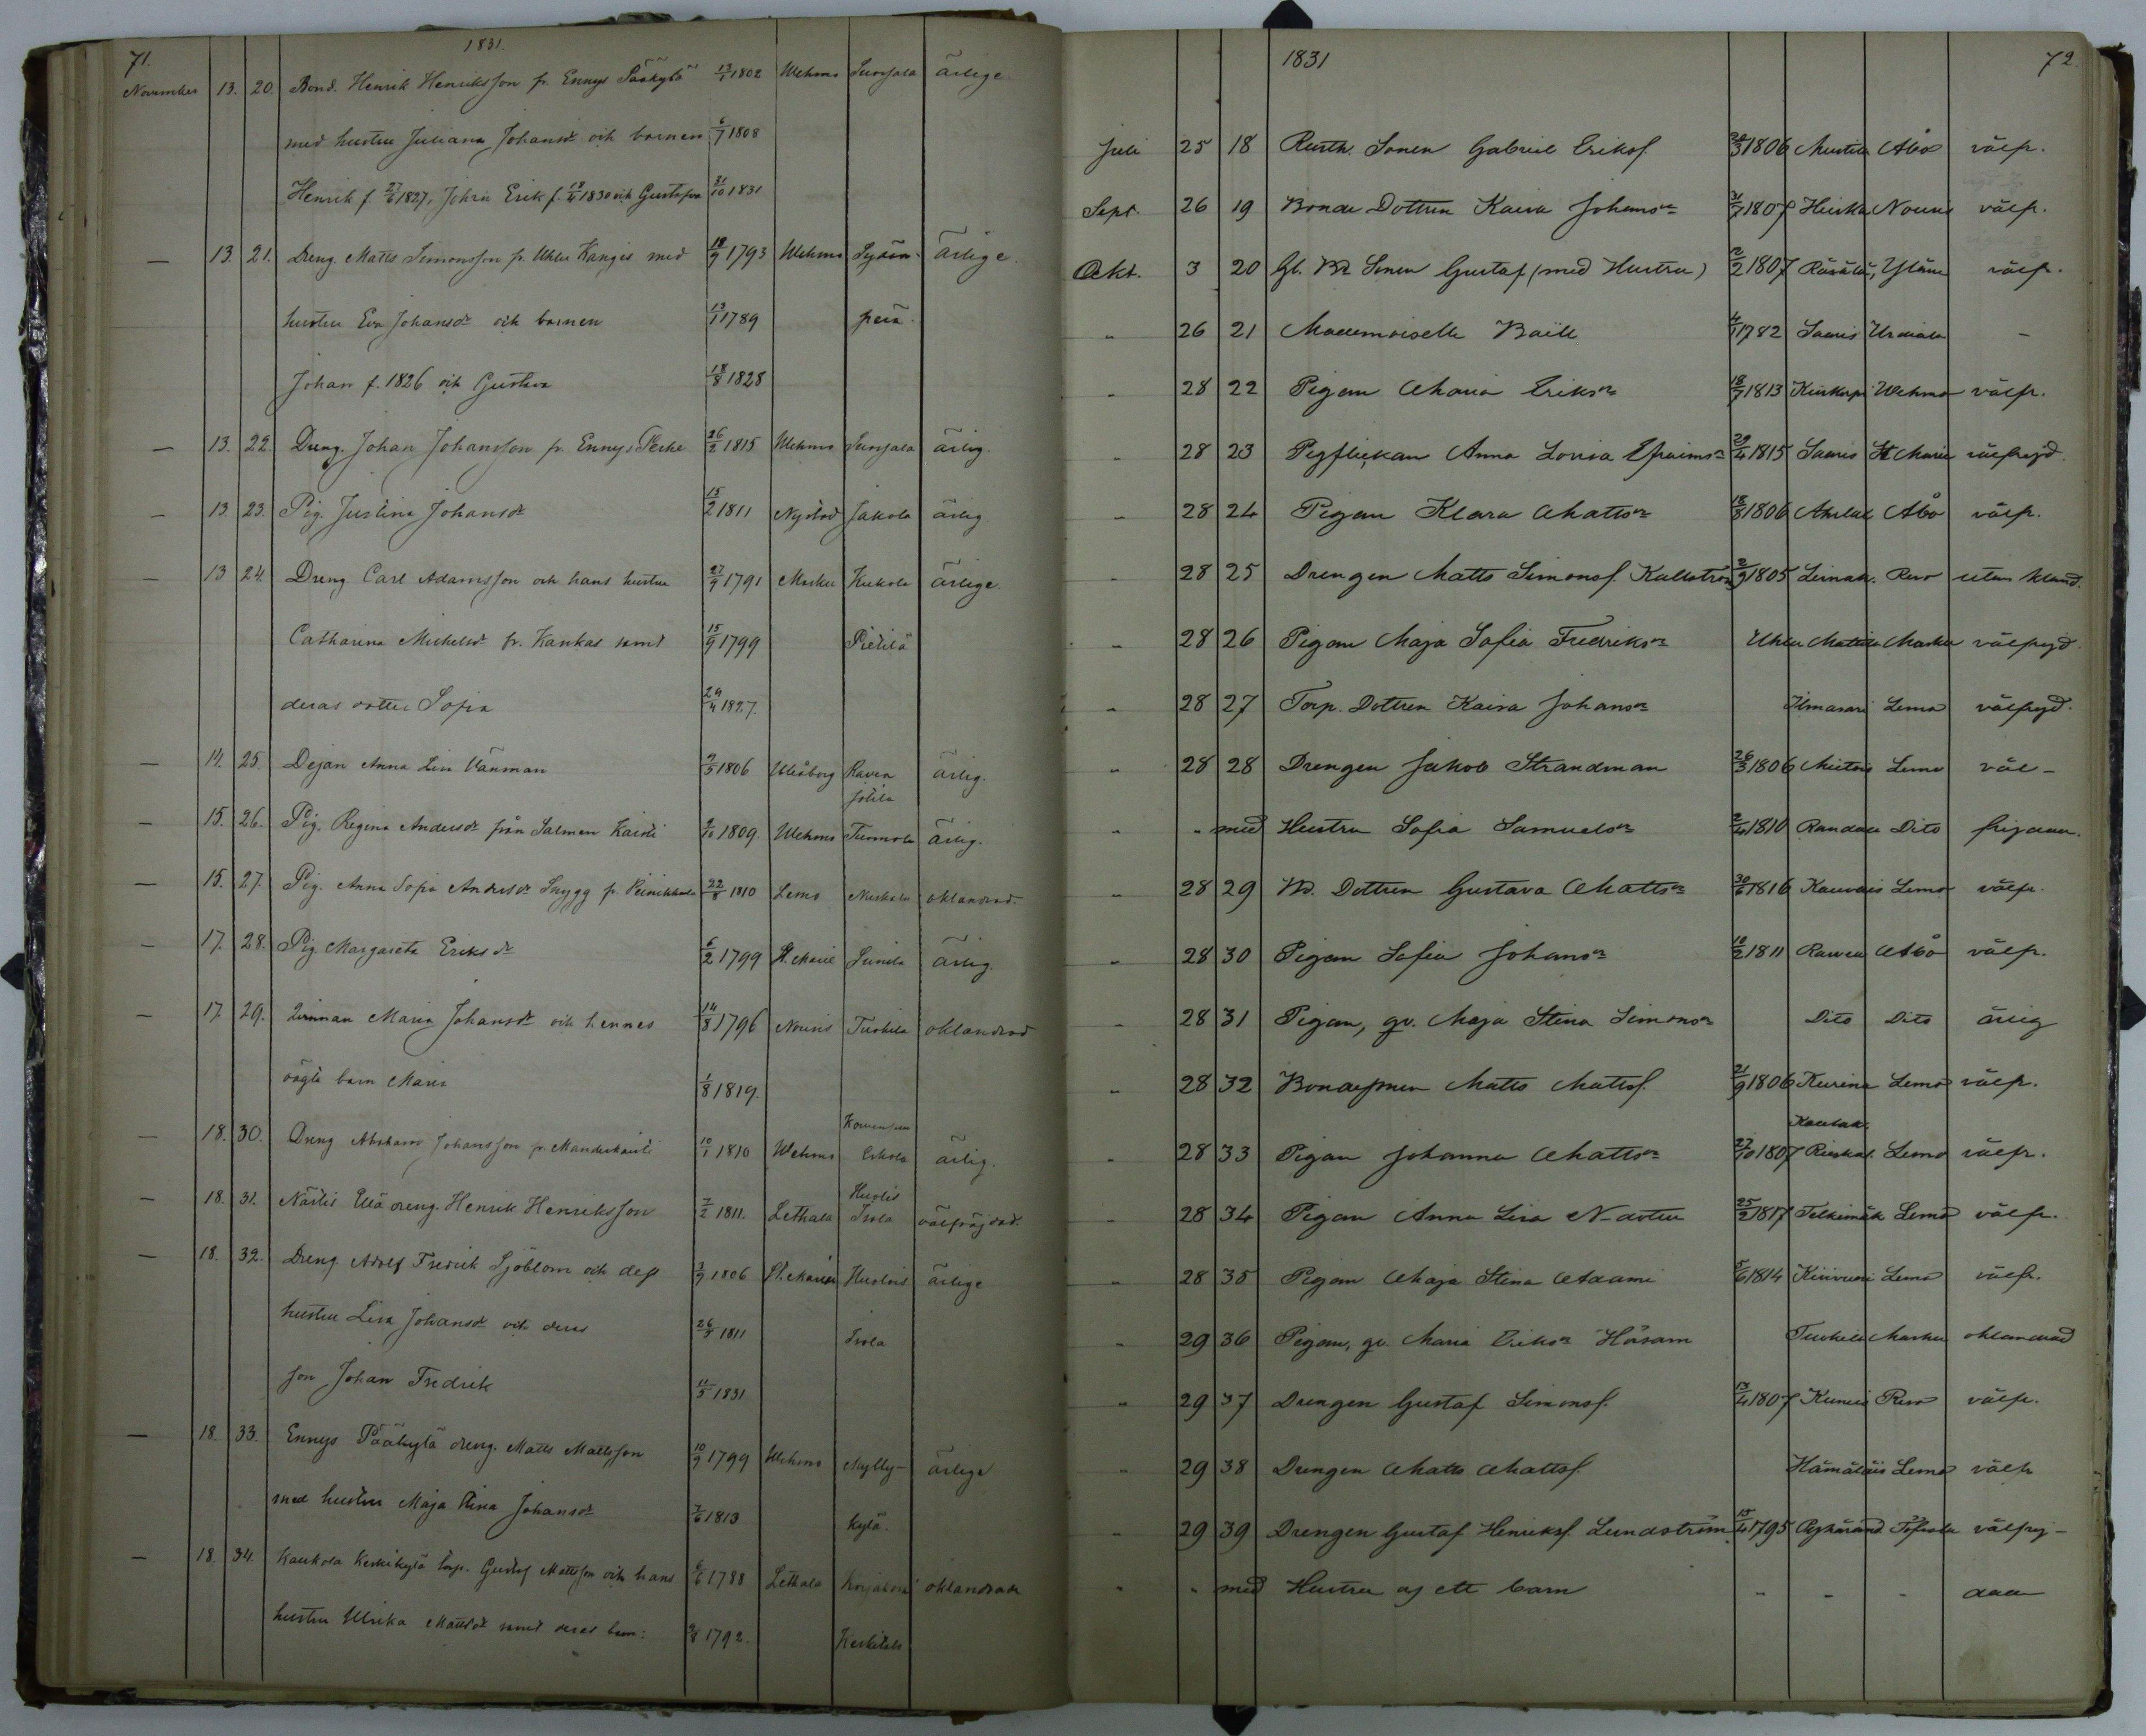 71.
1831.
November 13. 20. Bond. Henrik Henriksson fr. Ennys Pääkylä 13/1 1802 Wehmo ärlige
med hustru Juliana Johansdr och barnen 6/7 1808
Henrik f. 27/6 1827, Johan Erik f. 1830 och Gustafva 31/10 1831
— 13. 21. Dreng. Matts Simonsson fr. Uhlu Kangis med 18/9 1793 Wehmo ärlige.
hustru Eva Johansdr och barnen 1789 perä
Johan f. 1826 och Gustava 18/8 1828
— 13. 22. Dreng. Johan Johansson fr. Ennys 26/2 1815 Wehmo ärlig
— 13. 23. Pig. Justina Johansdr 15/2 1811 Nystad Jakola ärlig
— 13 24. Dreng Carl Adamsson och hans hustru 27/9 1791 Masku Kukola ärlige.
Catharina Michelsdr fr. Kankas samt 15/9 1799 Pietilä
deras dotter Sofia 29/4 1827.
— 14. 25. Dejan Anna Lisa Wänman 1806 Uleåborg Raven ärlig.
Jotila
— 15. 26. Pig. Regina Andersdr från Salmen Kaino 9/10 1809. Wehmo Tuomola ärlig.
— 15. 27. Pig. Anna Sofia Andersdr Snygg fr. 22/8 1810 Lemo oklandrad.
— 17. 28. Pig. Margareta Eriksdr 6/2 1799 St. Marie Junila ärlig.
— 17. 29. Qvinnan Maria Johansdr och hennes 14/8 1796 Nousis Tuskila oklandrad
oägta barn Maria 1/8 1819.
— 18. 30. Dreng Abraham Johansson fr. 10/1 1810 Wehmo Eskola ärlig.
Huolis
— 18. 31. Nästis Ellä dreng. Henrik Henriksson 7/2 1811. Lethala Isola välfräjdad.
— 18. 32. Dreng. Adolf Fredrik Sjöblom och dess 1806 St. Marie Huolis ärlige
hustru Lisa Johansdr och deras 1811 Isola
son Johan Fredrik 11/5 1831
— 18. 33. Ennys Pääkylä dreng. Matts Mattsson 10/9 1799 Wehmo Mylly- ärlige
med hustru Maja Stina Johansdr 1813 kylä.
— 18. 34. Kaukola Keskikylä torp. Gustaf Mattsson och hans 1788 Lethala oklandrade
hustru Ulrika Mattsdr samt deras barn: 1792. Keskitalo
1831
72.
Juli 25 18 Rusth. Sonen Gabriel Eriksf. 1806 Åbo välfr.
Sept. 26 19 Bonde Dottren Kaisa Johansdr 1807 Nousis välfr.
Okt. 3 20 Gl. Bd Sonen Gustaf (med Hustru) 1807 Räsälä, Yläne välfr.
" 26 21 Mademoiselle Baill 1782 Saaris Urdiala -
" 28 22 Pigan Maria Eriksdr 1813 Wehmo välfr.
" 28 23 Pigflickan Anna Lovisa Efraimsdr 29/4 1815 Saaris St Marie välfrejd.
" 28 24 Pigan Klara Mattsdr 18/8 1806 Åbo välfr.
" 28 25 Drengen Matts Simonsf. Kullström 1805 Reso utan kland.
" 28 26 Pigan Maja Sofia Fredriksdr Uhlu Mattila Masku välfrejd.
" 28 27 Torp. Dottren Kaisa Johansdr Ilmarari Lemo välfrejd.
" 28 28 Drengen Jakob Strandman 26/3 1806 Lemo väl-
" " med Hustru Sofia Samuelsdr 1810 Dito frijdade.
" 28 29 Bd. Dottren Gustava Mattsdr 30/6 1816 Lemo välfr.
" 28 30 Pigan Sofia Johansdr 1811 Åbo välfr.
" 28 31 Pigan, qv. Maja Stina Simonsdr Dito Dito ärlig
" 28 32 Bondesonen Matts Mattsf. 21/9 1806 Lemo välfr.
" 28 33 Pigan Johanna Mattsdr 27/10 1807 Lemo välfr.
" 28 34 Pigan Anna Lisa N-dotter 25/2 1817 Lemo välfr.
" 28 35 Pigan Maja Stina Adami 1814 Lemo välfr.
" 29 36 Pigan, qv. Maria Eriksdr Tuskila Masku oklandrad
" 29 37 Drengen Gustaf Simonsf. 1807 Reso välfr.
" 29 38 Drengen Matts Mattsf. Hämäläis Lemo välfr
" 29 39 Drengen Gustaf Henriksf. Lundström 1795 Töfsala välfrej-
" " med Hustru og ett barn - - - dade